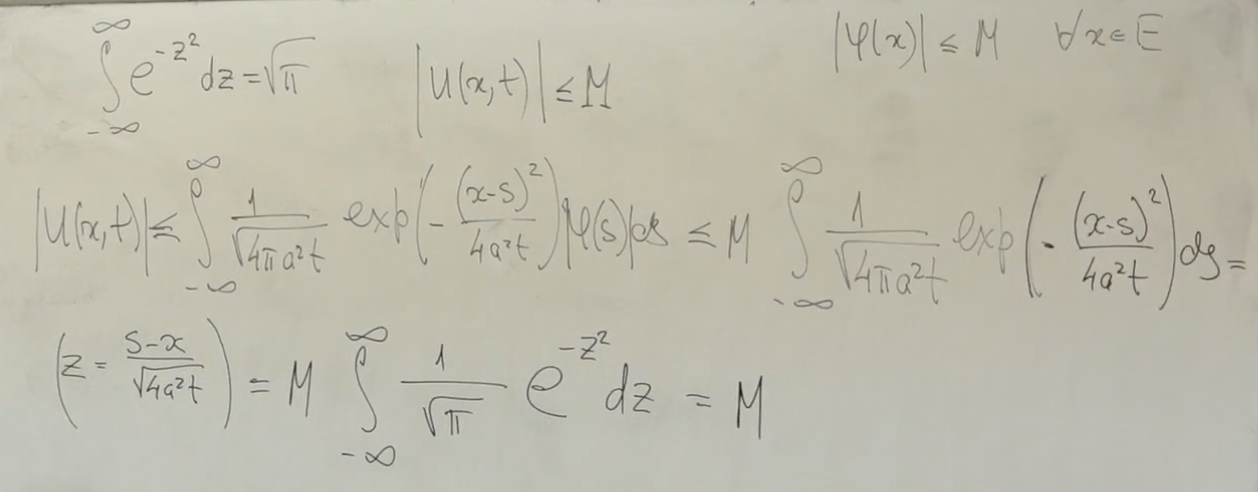 ∫_{-∞}^{∞} e^{-z²} dz = √π   |U(x,t)| ≤ M   |φ(x)| ≤ M   ∀x∈E
|U(x,t)| ≤ ∫_{-∞}^{∞} 1/√(4πa²t) exp(-(x-s)²/4a²t) |φ(s)| ds ≤ M ∫_{-∞}^{∞} 1/√(4πa²t) exp(-(x-s)²/4a²t) ds =
(z = (s-x)/√(4a²t)) = M ∫_{-∞}^{∞} 1/√π e^{-z²} dz = M